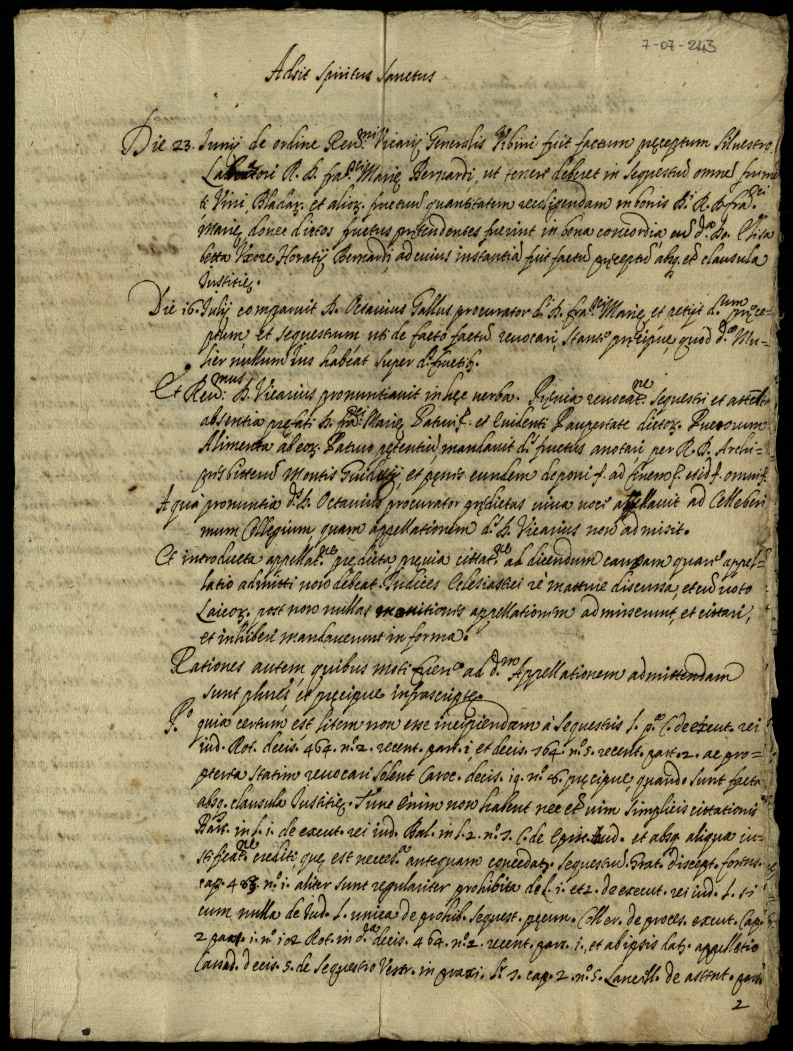 7-07-243
Adsit Spiritus Sanctus
Die 23. Junij de ordine Reu.mi Vicarij Generalis Vrbini fuit factum pręceptum Siluestro
Laboratori R. D. fra.ci Marię Bernardi, ut tenere deberet in sequestrũ omnẽ frume
ti Vini, Bladoꝝ. et alioꝝ. fructuũ quantitatem recolligendam in bonis D.i R. D. fra.ci
Marię, donec dictos fructus prętendentes fuerint in bona concordia cũ d.a D.a Elisa
betta Vxore Horatij Bernardi, ad cuius instantiã fuit factũ pręceptũ absq. et clausula
Justitię.
Die 16. Julij comparuit D. Octauius Gallus procurator d.i D. fra.ci Marię, et petijt d.cum pręce=
ptum et sequestrum uti de facto factũ reuocari, stante pręcipue, quod d.a Mu=
lier nullum ius habeat super d.i fructib.
Et Reu.mus D. Vicarius pronuntiauit in hęc uerba. Pręuia reuocat.ne sequestri et attenta
absentia pręfati D. fra.ci Marię Patrui f. et Euidenti Paupertate dictoꝝ. Puerorum
Alimenta ab eoꝝ. Patruo petentiũ mandauit d.i fructus anotari per R. D. Archi=
pręsbitterũ Montis Guiduzij, et penes eundem deponi f. ad finem f. et id f. omni f.
A qua pronuntia d.s D. Octauius procurator prędictus uiua uoce appellauit ad Celleberi
mum Collegium quam appellationem d.s D. Vicarius non admisit.
Et introducta appellat.ne prędicta pręuia cittat.ne ad dicendum causam quare appel=
latio admitti non debeat. Judices Eclesiastici re mature discussa, et cũ uoto
Laicoꝝ, post non nullas monitiones appellationem admiserunt, et cittari,
et inhiberi mandauerunt in forma.
Rationes autem, quibus moti fuere ad d.m Appellationem admittendam
sunt plures, et pręcipue infrascriptę.
P.o quia certum est litem non esse incipiendam à sequestris l. p.a C. de execut. rei
iud. Rot. decis. 464. n.o 2. recent. part. 1, et decis. 764. n.o 5. recent. part. 2. ac pro=
pterea statim reuocari solent Caroc. decis. 19. n.o 6. pręcipue, quando sunt facta
absq. clausula Justitię. Tunc enim non habent nec et uim simplicis cittationis
Bart. in l. 1. de execut. rei iud. Bal. in l. 2. n.o 3. C. de Epis. Aud. et absq. aliqua iu=
stificat.ne crediti quę est necess.a antequam concedat. sequestrũ. Grat. discept. forens.
cap. 483. n.o 1. aliter sunt regulariter prohibita d. l. 1. et 2. de execut. rei iud. l. si
cum nulla de Iud. l. unica de prohib. sequest. pęcun. Coller. de proces. execut. Cap.
2 part. 1. n.o 102 Rot. in d.a decis. 464. n.o 2. recent. part. 1, et ab ipsis dat. appellatio
Cassad. decis. 5. de sequestro Vestr. in praxi. l. 3. cap. 2. n.o 5. Lancill. de attent. part
2